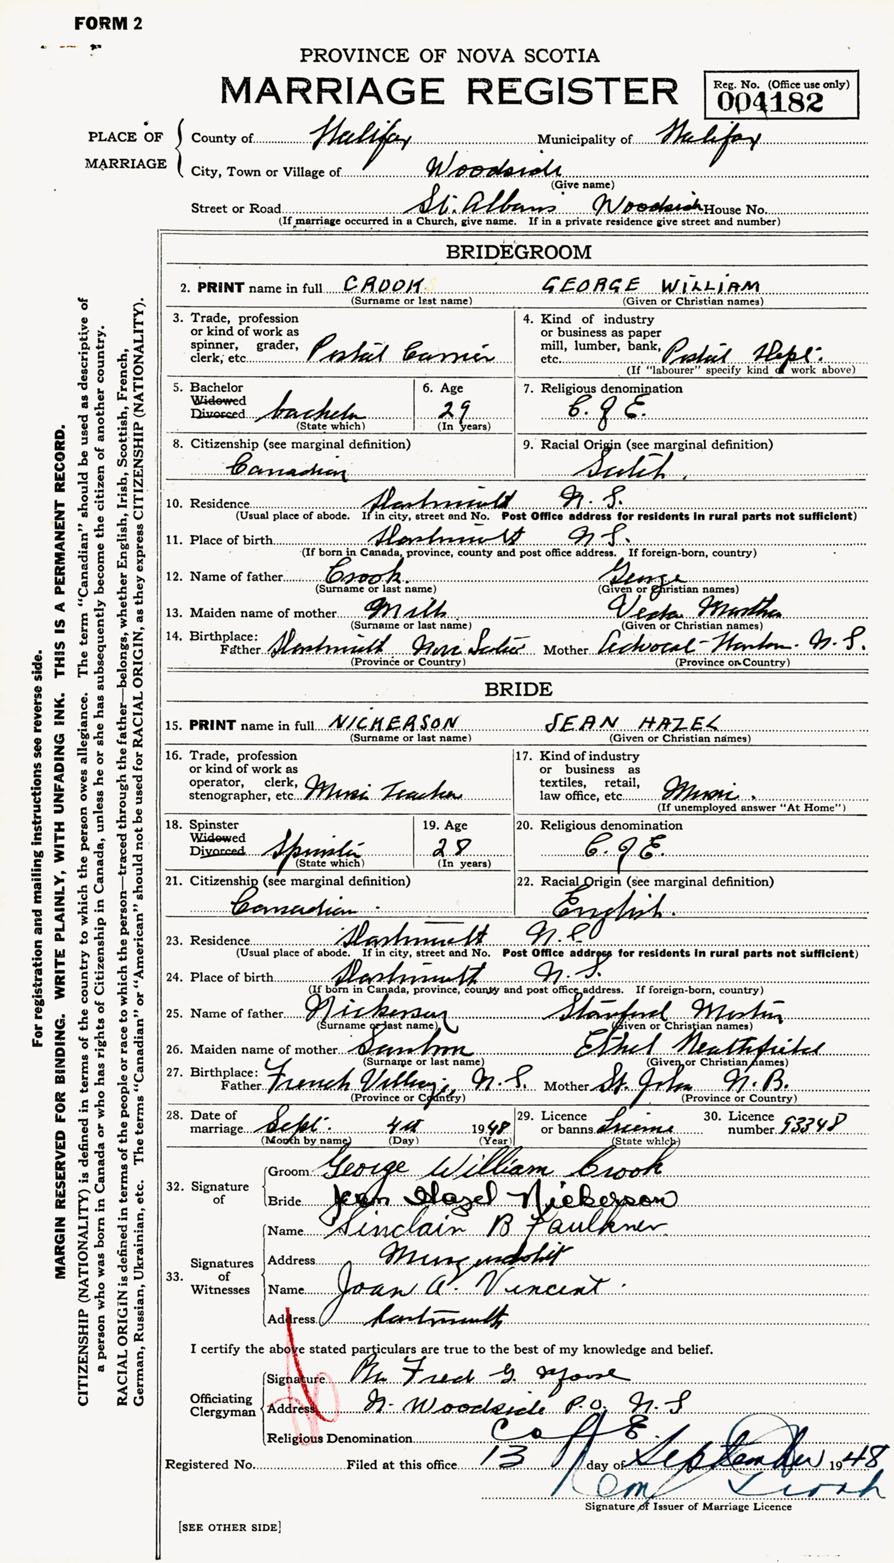 FORM 2
PROVINCE OF NOVA SCOTIA
MARRIAGE REGISTER
Reg. No. (Office use only)
004182
PLACE OF MARRIAGE
County of Halifax Municipality of Halifax
City, Town or Village of Woodside
(Give name)
Street or Road St. Albans Woodside House No.
(If marriage occurred in a Church, give name. If in a private residence give street and number)
BRIDEGROOM
2. PRINT name in full CROOK GEORGE WILLIAM
(Surname or last name) (Given or Christian names)
3. Trade, profession or kind of work as spinner, grader, clerk, etc. Postal Carrier
4. Kind of industry or business as paper mill, lumber, bank, etc. Postal Dept.
(If "labourer" specify kind of work above)
5. Bachelor Widowed Divorced bachelor
(State which)
6. Age 29
(In years)
7. Religious denomination C. of E.
8. Citizenship (see marginal definition) Canadian
9. Racial Origin (see marginal definition) Scotch
10. Residence Dartmouth N. S.
(Usual place of abode. If in city, street and No. Post Office address for residents in rural parts not sufficient)
11. Place of birth Dartmouth N. S.
(If born in Canada, province, county and post office address. If foreign-born, country)
12. Name of father Crook George
(Surname or last name) (Given or Christian names)
13. Maiden name of mother Mills Martha
(Surname or last name) (Given or Christian names)
14. Birthplace:
Father Dartmouth Nova Scotia Mother Advocate Harbor N. S.
(Province or Country) (Province or Country)
BRIDE
15. PRINT name in full NICKERSON JEAN HAZEL
(Surname or last name) (Given or Christian names)
16. Trade, profession or kind of work as operator, clerk, stenographer, etc. Music Teacher
17. Kind of industry or business as textiles, retail, law office, etc. Music.
(If unemployed answer "At Home")
18. Spinster Widowed Divorced Spinster
(State which)
19. Age 28
(In years)
20. Religious denomination C. of E.
21. Citizenship (see marginal definition) Canadian.
22. Racial Origin (see marginal definition) English.
23. Residence Dartmouth N. S.
(Usual place of abode. If in city, street and No. Post Office address for residents in rural parts not sufficient)
24. Place of birth Dartmouth N. S.
(If born in Canada, province, county and post office address. If foreign-born, country)
25. Name of father Nickerson Stanford
(Surname or last name) (Given or Christian names)
26. Maiden name of mother Ethel Heathfield
(Surname or last name) (Given or Christian names)
27. Birthplace:
Father French Village, N. S. Mother St. John N. B.
(Province or Country) (Province or Country)
28. Date of marriage Sept. 4th 1948
(Month by name) (Day) (Year)
29. Licence or banns License
(State which)
30. Licence number 93348
32. Signature of
Groom George William Crook
Bride Jean Hazel Nickerson
33. Signatures of Witnesses
Name Sinclair B Faulkner
Address
Name Joan A. Vincent.
Address Dartmouth
I certify the above stated particulars are true to the best of my knowledge and belief.
Officiating Clergyman
Signature Fred G
Address N. Woodside P.O. N. S
Religious Denomination C of E.
Registered No. Filed at this office 13 day of September 1948
Crook
Signature of Issuer of Marriage Licence
[SEE OTHER SIDE]
For registration and mailing instructions see reverse side.
MARGIN RESERVED FOR BINDING. WRITE PLAINLY, WITH UNFADING INK. THIS IS A PERMANENT RECORD.
CITIZENSHIP (NATIONALITY) is defined in terms of the country to which the person owes allegiance. The term "Canadian" should be used as descriptive of
a person who was born in Canada or who has rights of Citizenship in Canada, unless he or she has subsequently become the citizen of another country.
RACIAL ORIGIN is defined in terms of the people or race to which the person—traced through the father—belongs, whether English, Irish, Scottish, French,
German, Russian, Ukrainian, etc. The terms "Canadian" or "American" should not be used for RACIAL ORIGIN, as they express CITIZENSHIP (NATIONALITY).